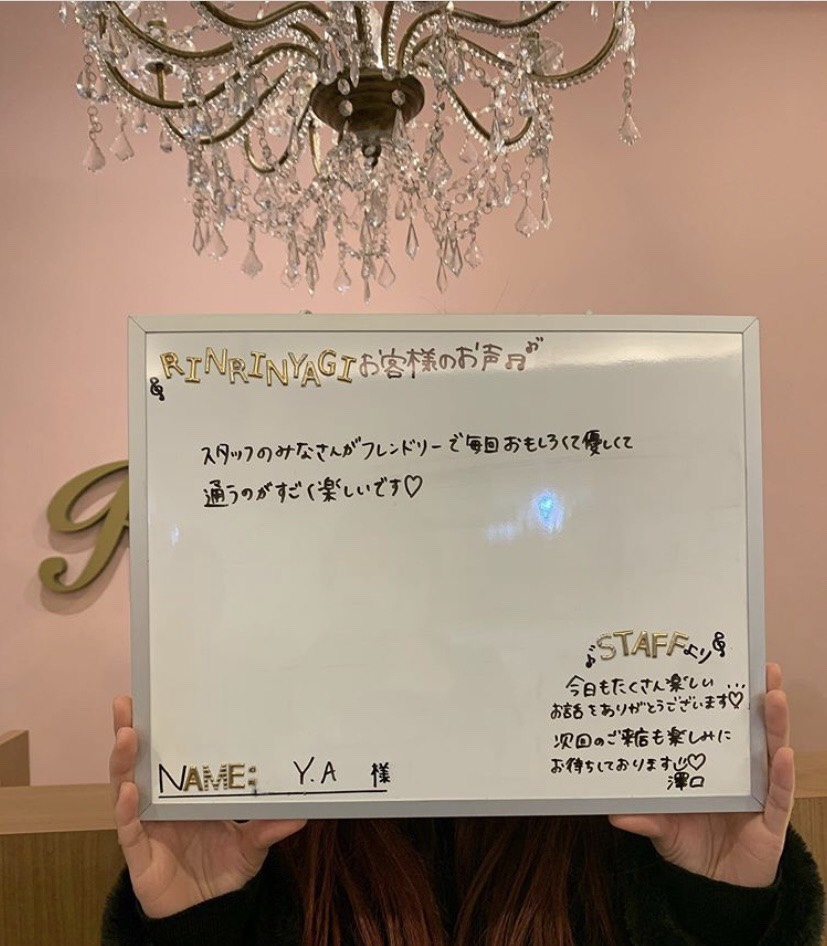 RINRINYAGIお客様のお声♫♪
スタッフのみなさんがフレンドリーで毎回おもしろくて優しくて
通うのがすごく楽しいです♡
♪STAFFより
今日もたくさん楽しい
お話をありがとうございます♡
次回のご来店も楽しみに
お待ちしております♡
澤口
NAME; Y.A 様